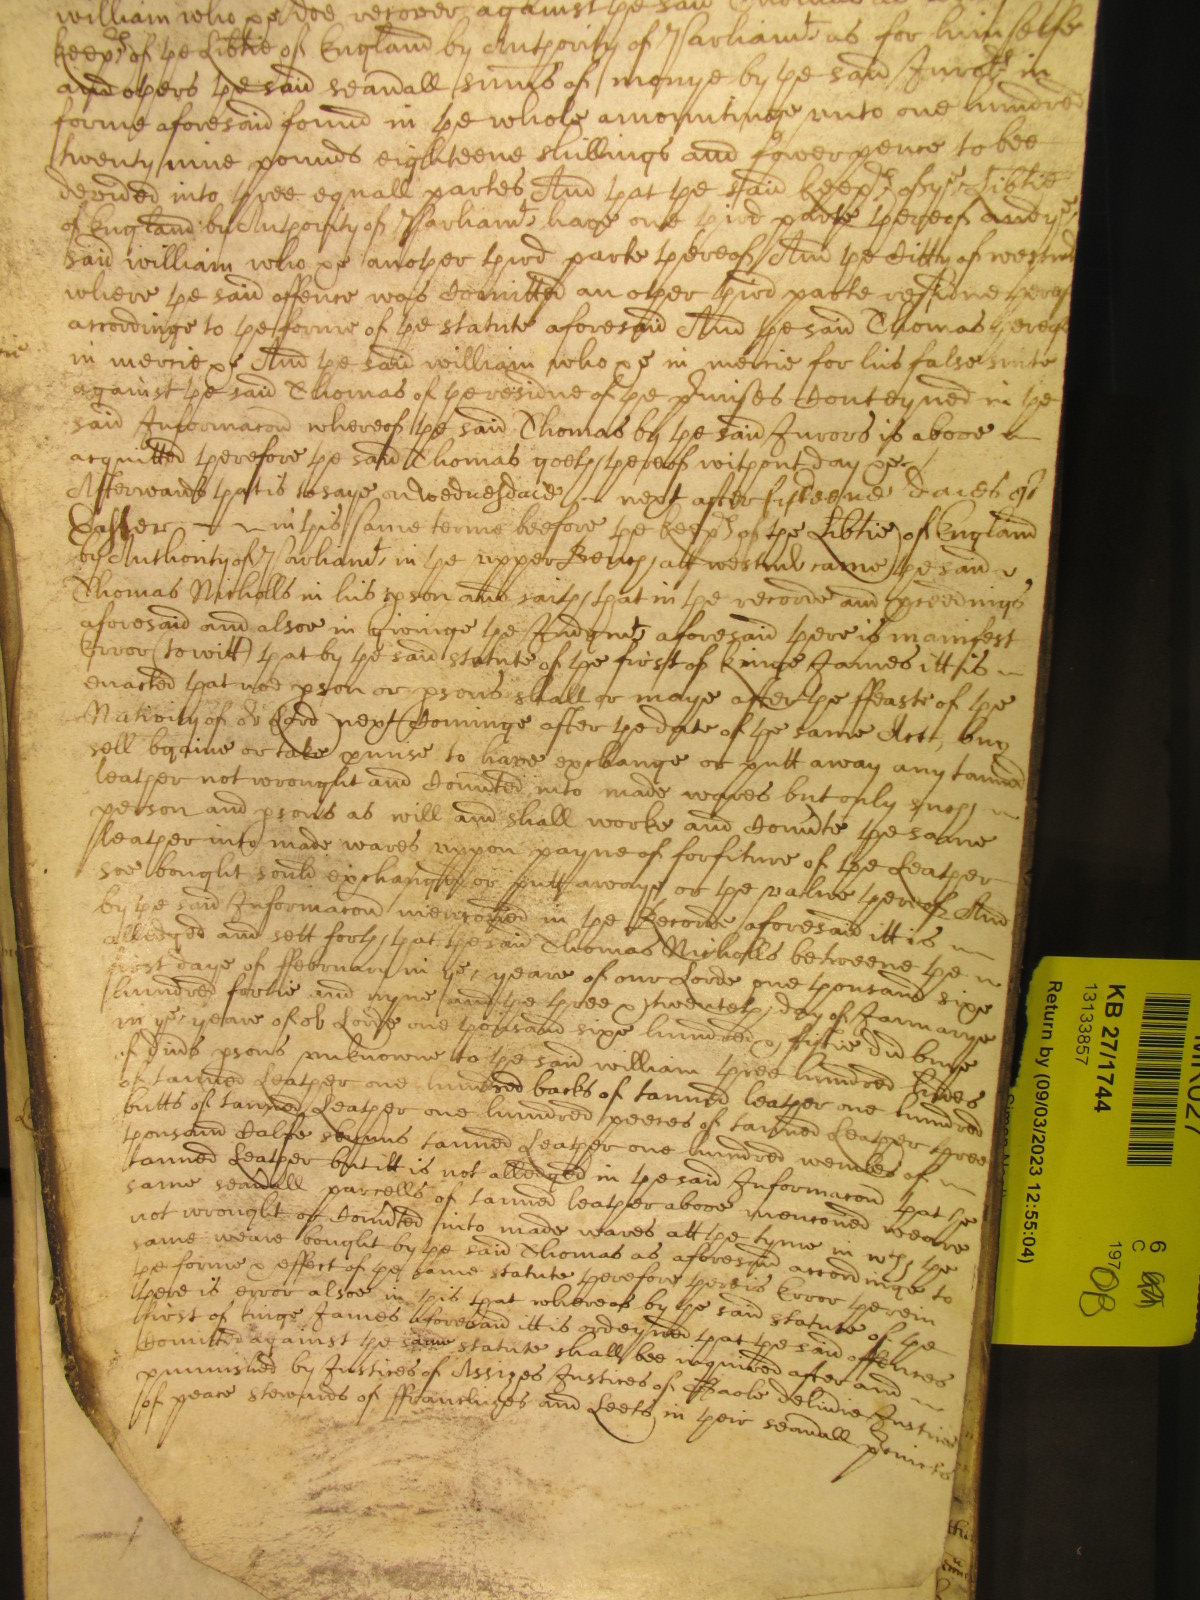 william who &c doe recover against the said Thomas
keeprs of the Libtie of England by Authority of Parliamt as for himselfe
and others the said seaverall sums of monye by the said Jurors in
forme aforesaid found in the whole amountinge unto one hundred
twenty nine pounds eighteene shillings and fower pence to bee
devided into three equall partes And that the said keeprs of ye Libtie
of England by Authority of Parliamt have one third parte thereof and ye
said william who &c another third parte thereof And the Citty of westmr
where the said offence was Comitted an other third parte residue thereof
accordinge to the forme of the statute aforesaid And the said Thomas thereof
in mercie &c And the said william who &c in mercie for his false suite
against the said Thomas of the residue of the pmisses Conteyned in the
said Informacon whereof the said Thomas by the said Jurors is above
acquitted therefore the said Thomas goeth thereof without day &c
Afterwards that is to saye on Wednesdaie next after fifteene daies of
Easter in this same terme beefore the keeprs of the Libtie of England
by Authority of Parliamt in the upper Bench att westmr came the said
Thomas Nicholls in his pson and saith that in the recorde and pceedings
aforesaid and alsoe in giveinge the Judgmt aforesaid there is manifest
Error (to witt) that by the said statute of the first of kinge James itt is
enacted that noe pson or psons shall or maye after the ffeaste of the
Nativity of or Lord next Cominge after the date of the same Act, buy
sell bgaine or take pmise to have exchange or putt away any tanned
leather not wrought and Conuted into made wares but only such
person and psons as will and shall worke and Conute the same
leather into made wares uppon payne of forfiture of the Leather
soe bought sould exchanged or putt awaye or the value thereof And
by the said Informacon menconed in the Recorde aforesaid itt is
alledged and sett forth that the said Thomas Nicholls betweene the
first daye of ffebruary in ye yeare of our Lorde one thousand sixe
hundred fortie and nyne and the three & twenteth day of Januarye
in ye yeare of or Lorde one thousand sixe hundred & fiftie did buye
of divs psons unknowne to the said william three hundred hides
of tanned Leather one hundred backs of tanned leather one hundred
butts of tanned Leather one hundred peeces of tanned Leather three
thousand Calfe skynns tanned Leather one hundred wembes of
tanned Leather but itt is not alledged in the said Informacon that the
same seaverall parcells of tanned leather above menconed weare
not wrought or Conuted into made wares att the tyme in wch the
same weare bought by the said Thomas as aforesaid accordinge to
the forme & effect of the same statute therefore there is Error therein
there is error alsoe in this that whereas by the said statute of the
first of kinge James aforesaid itt is ordeyned that the said offences
Comitted against the same statute shall bee inquired after and
punnished by Justices of Assizes Justices of Gaole deliverie Justices
of peace stewards of ffranchizes and Leets in their seaverall
KB 27/1744
13133857
Return by (09/03/2023 12:55:04)
6
C
197